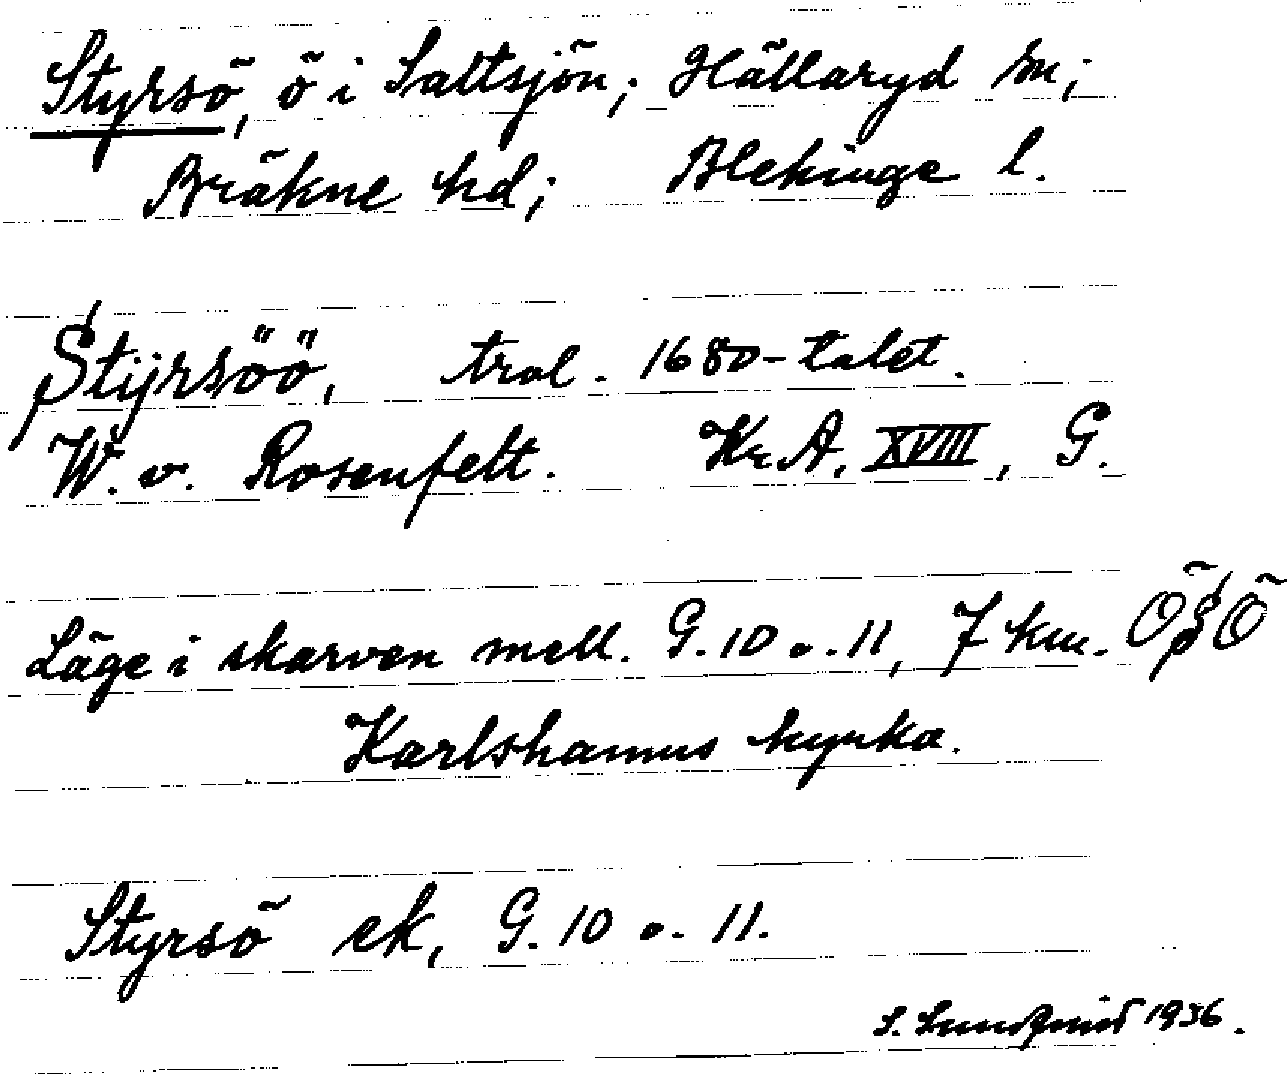 Styrsö, ö i Saltsjön; Hällaryd sn;
Bräkne hd; Blekinge l.
Stijrsöö, trol. 1680-talet.
W. v. Rosenfelt. Kr.A. XVIII, G.
Läge i skarven mell. G. 10 o. 11, 7 km. ÖSÖ
Karlshamns kyrka.
Styrsö ek, G. 10 o. 11.
S. Lundqvist 1936.